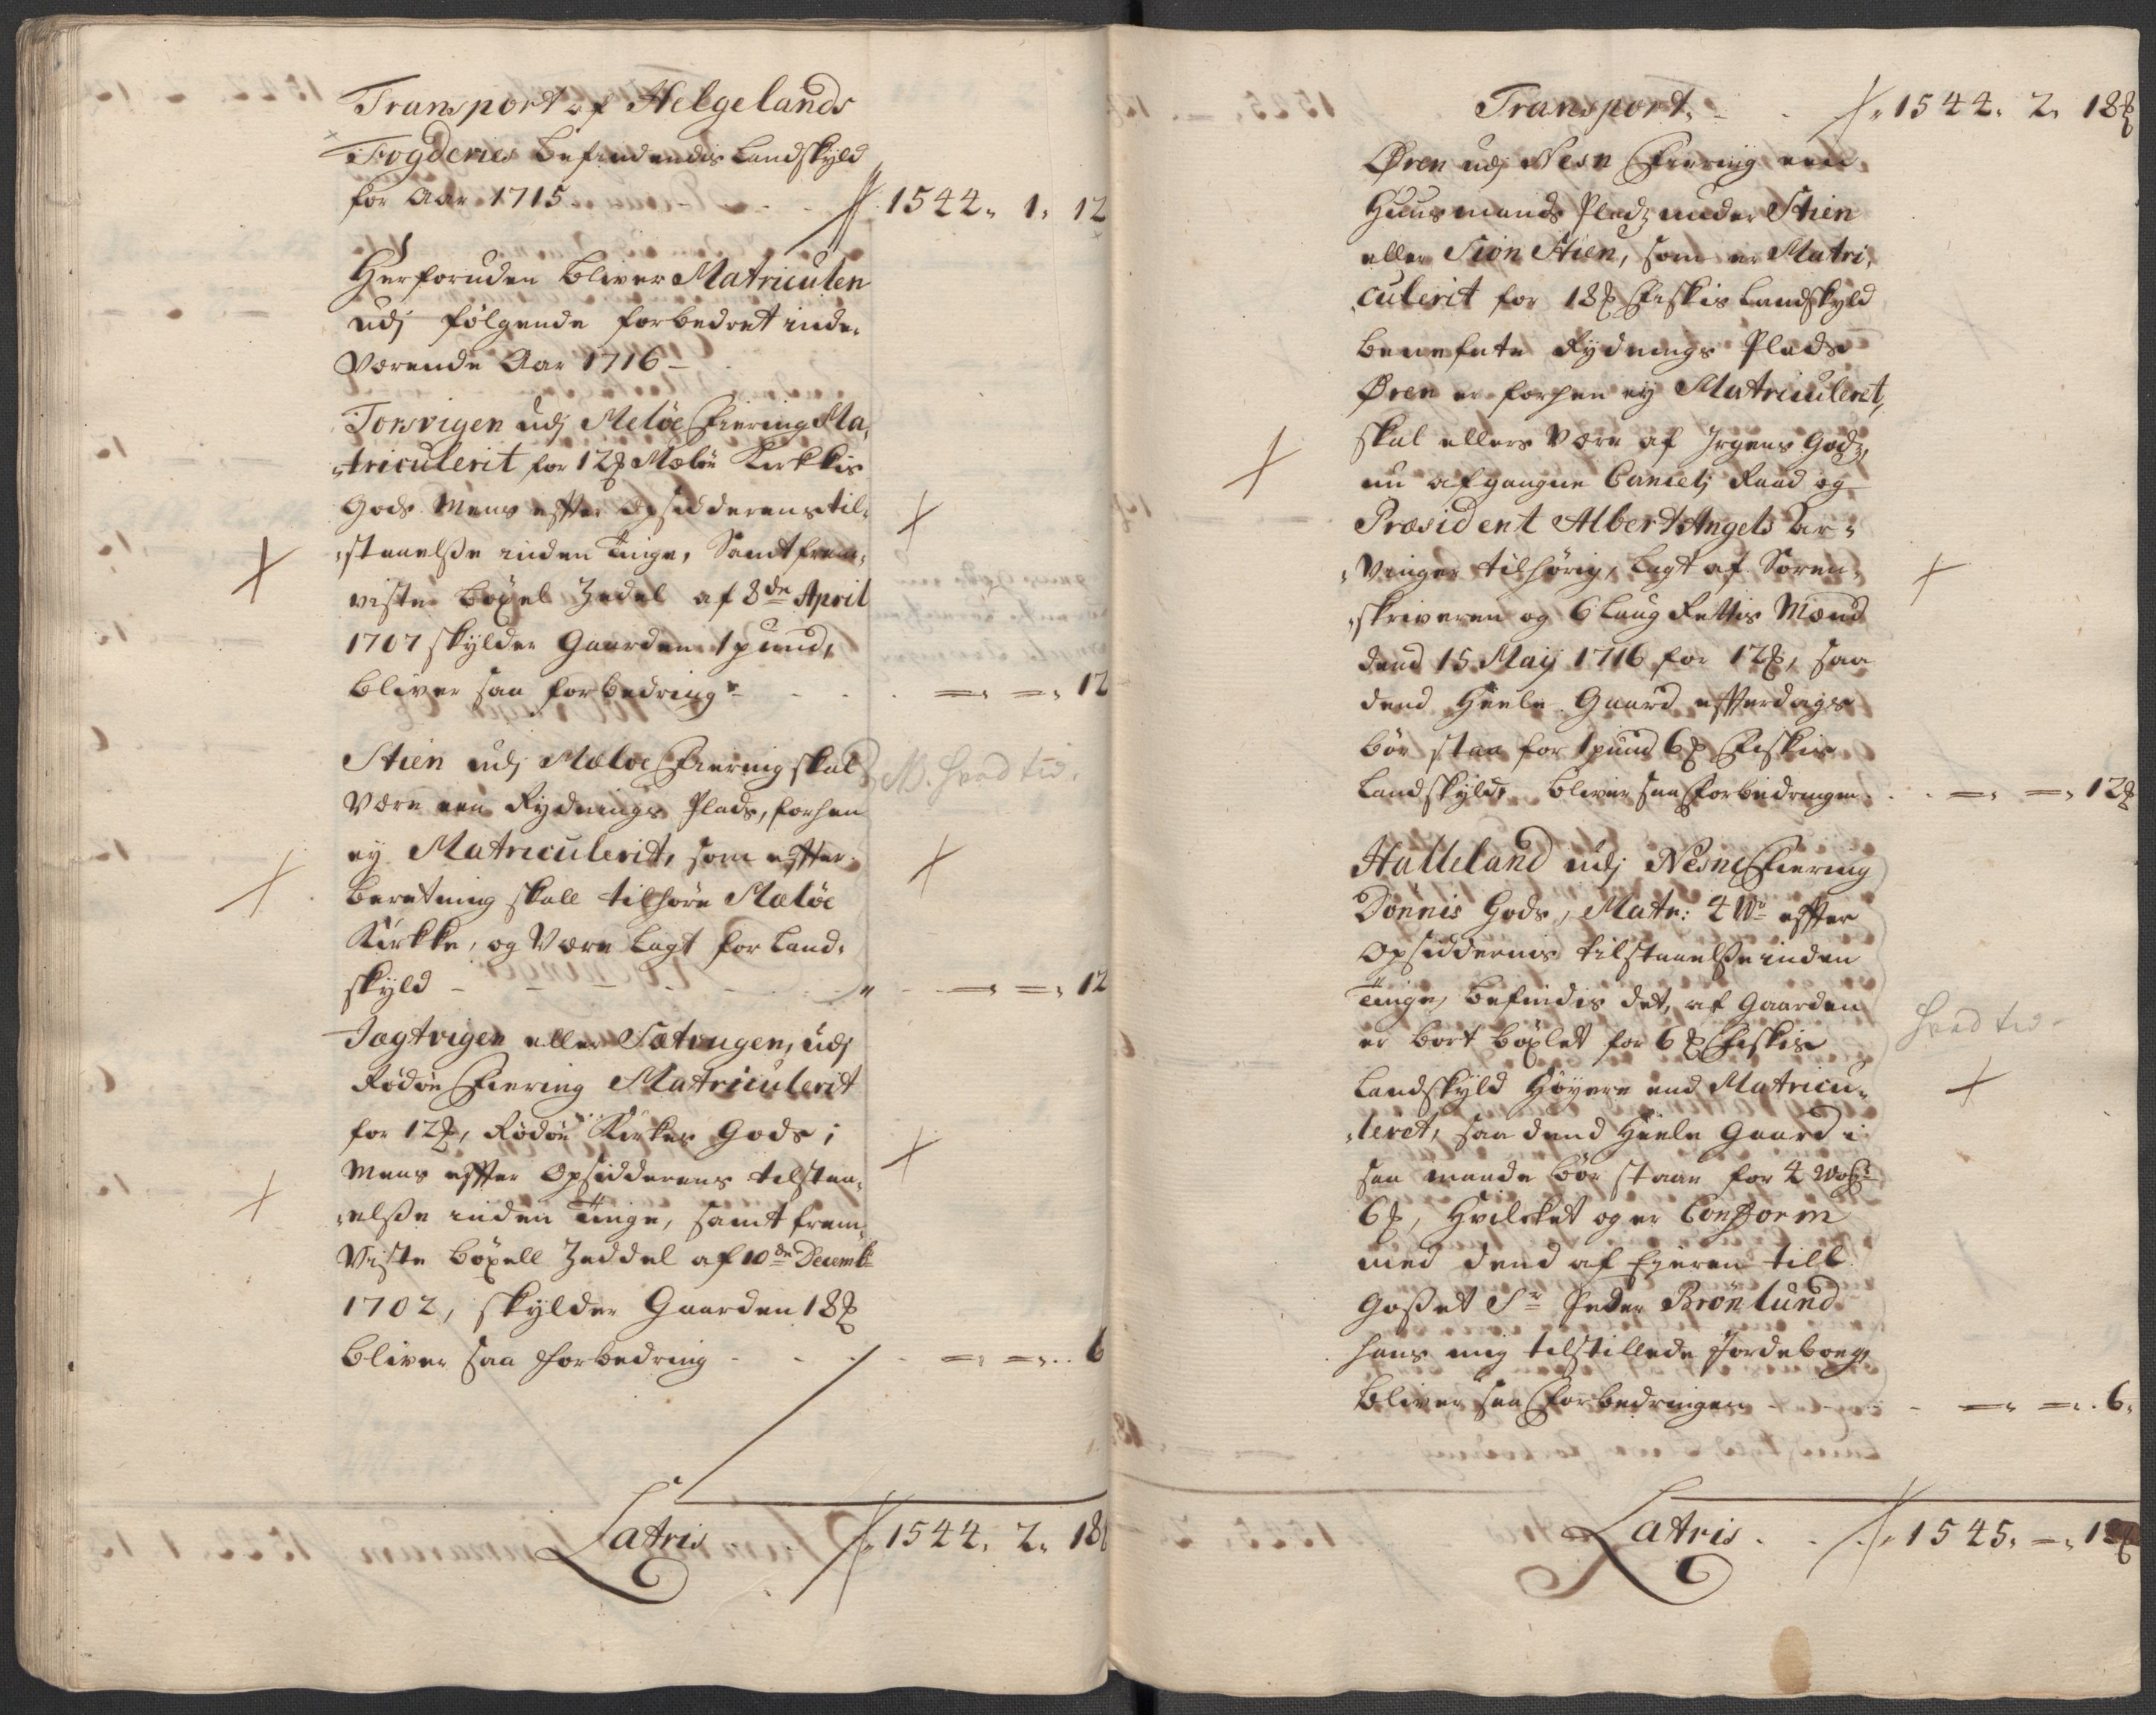 Transport af Helgelands
Fogderies befindendis Landskyld
for Aar 1715 - - 1544. 1. 12
Herforuden bliver Matriculen
udj følgende forbedret inde-
værende Aar 1716 -
Tonvigen udj Meløe Fiering Ma-
-triculerit for 12 Meløe Kirkkis
Gods Mens effter Opsidderens til-
-staaelsse inden Tinge, Samt frem-
viste böxel Zedel af 8de April
1707 skylder Gaarden 1 pund,
bliver saa forbedring - - - = = 12
Stien udj Meløe Fiering skal NB. hvad tid.
være een Rydnings Plads, forhen
ey Matriculerit, som effter
beretning skall tilhøre Meløe
Kirkke, og være lagt for Land-
skyld - - - = = 12
Jægtvigen eller Sætvigen, udj
Rødøe Fiering Matriculerit
for 12, Rødøe Kirkes Gods;
Mens effter Opsidderens tilstaa-
-elsse inden Tinge, samt frem-
Viste böxell Zeddel af 10de Decemb:
1702, skylder Gaarden 18
bliver saa forbedring - - - = = 6
Latris - 1544. 2. 18
Transport - 1544. 2. 18
Øren udj Nesn Fiering een
Huusmands Pladz under Stien
eller Sion Stien, som er Matri-
culerit for 18 Fiskis Landskyld
benefnte Rydnings Plads
Øren er forhen ey Matriculeret,
skal ellers være af Irgens Godz,
nu afgangne Cancelj Raad og
Præsident Albert Angels Ar-
-vinger tilhørig, lagt af Soren-
-skriveren og 6 Laug Rettis Mænd
dend 15 Maij 1716 for 12, saa
dend Heele Gaard effterdags
bør staa for 1 pund 6 Fiskis
Landskyld, bliver saa forbedringen - = = 12
Halleland udj Nesne Fiering
Dønnis Gods, Matr: 4 Wo effter
Opsiddernis tilstaaelsse inden
Tinge, befindis det, af Gaarden hvad tid -
er bort böxlet for 6 Fiskis
Landskyld Høyere end Matricu-
-leret, saa dend Heele Gaard i
saa maade bør staae for 4 Wog
6, Hvilcket og er Conform
med dend af Ejeren till
Godset Sr Peder Brønlund
hans mig tilstillede Jordebog,
bliver saa forbedringen - - = = 6.
Latris - 1545. = 12